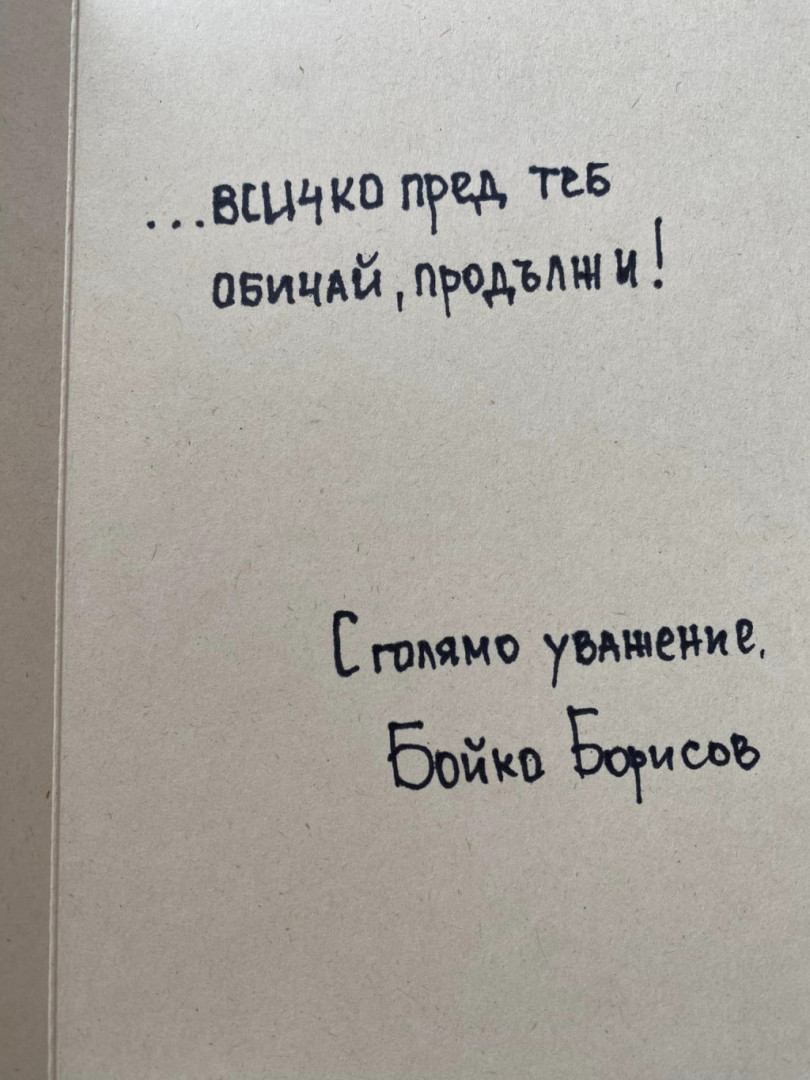 ...всичко пред теб
обичай, продължи!
С голямо уважение.
Бойко Борисов